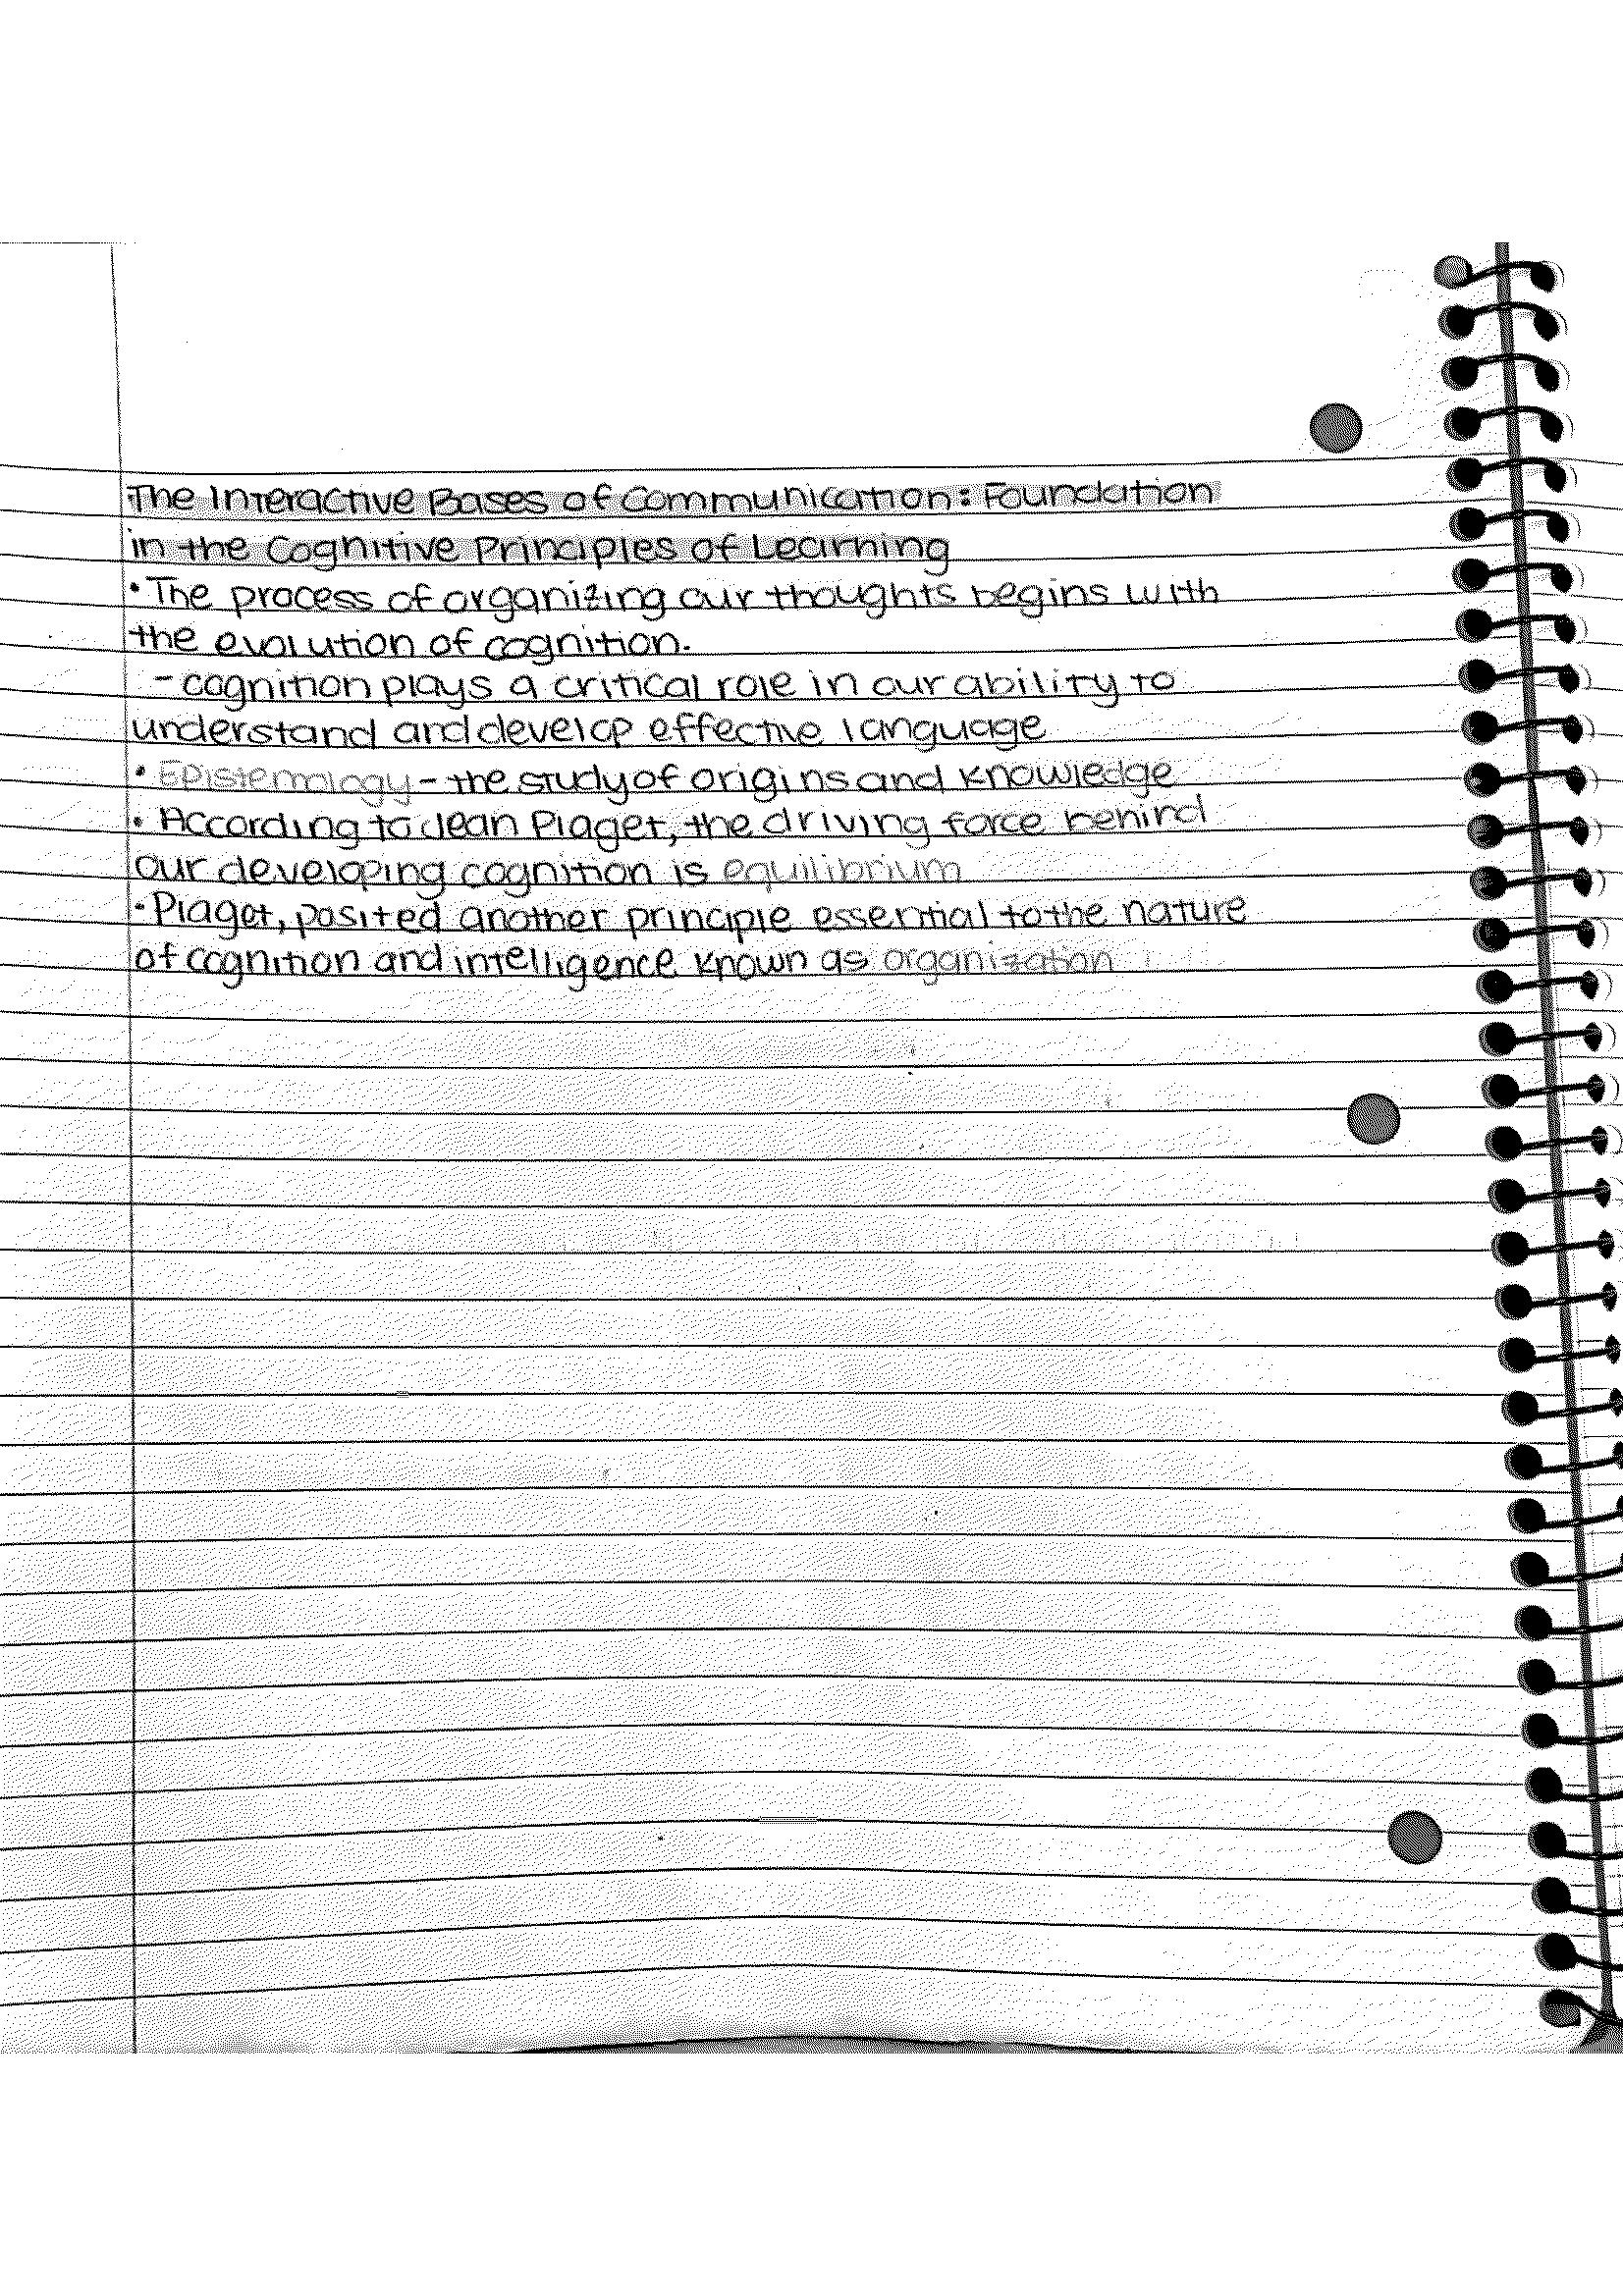 The Interactive Bases of Communication: Foundation
in the Cognitive Principles of Learning
• The process of organizing our thoughts begins with
the evolution of cognition.
- cognition plays a critical role in our ability to
understand and develop effective language
• Epistemology - the study of origins and knowledge
• According to Jean Piaget, the driving force behind
our developing cognition is equilibrium
• Piaget, posited another principle essential to the nature
of cognition and intelligence known as organization